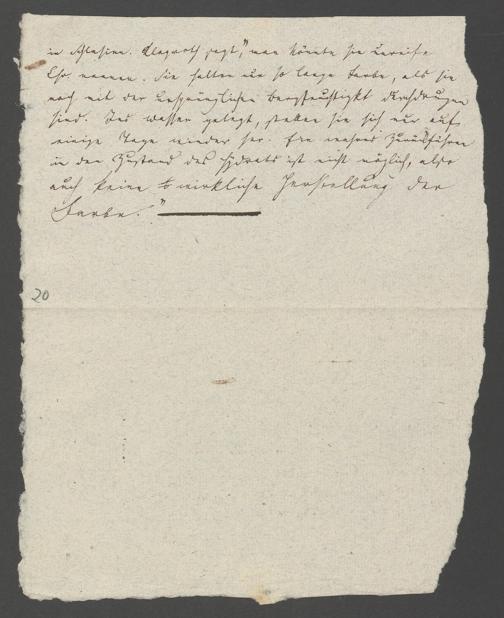 in Schlesien. Klaproth sagt, "man könnte sie unreife
nennen. Sie halten nur so lange Farbe, als sie
noch mit der ursprünglichen Bergfeuchtigkt durchdrungen
sind. Ins Wasser gelegt, stellen sie sich nur auf
einige Tage wieder her. Ein wahres Zurückführen
in den Zustand des Hydrats ist nicht möglich, also
auch keine wirkliche Herstellung der
Farbe."
20